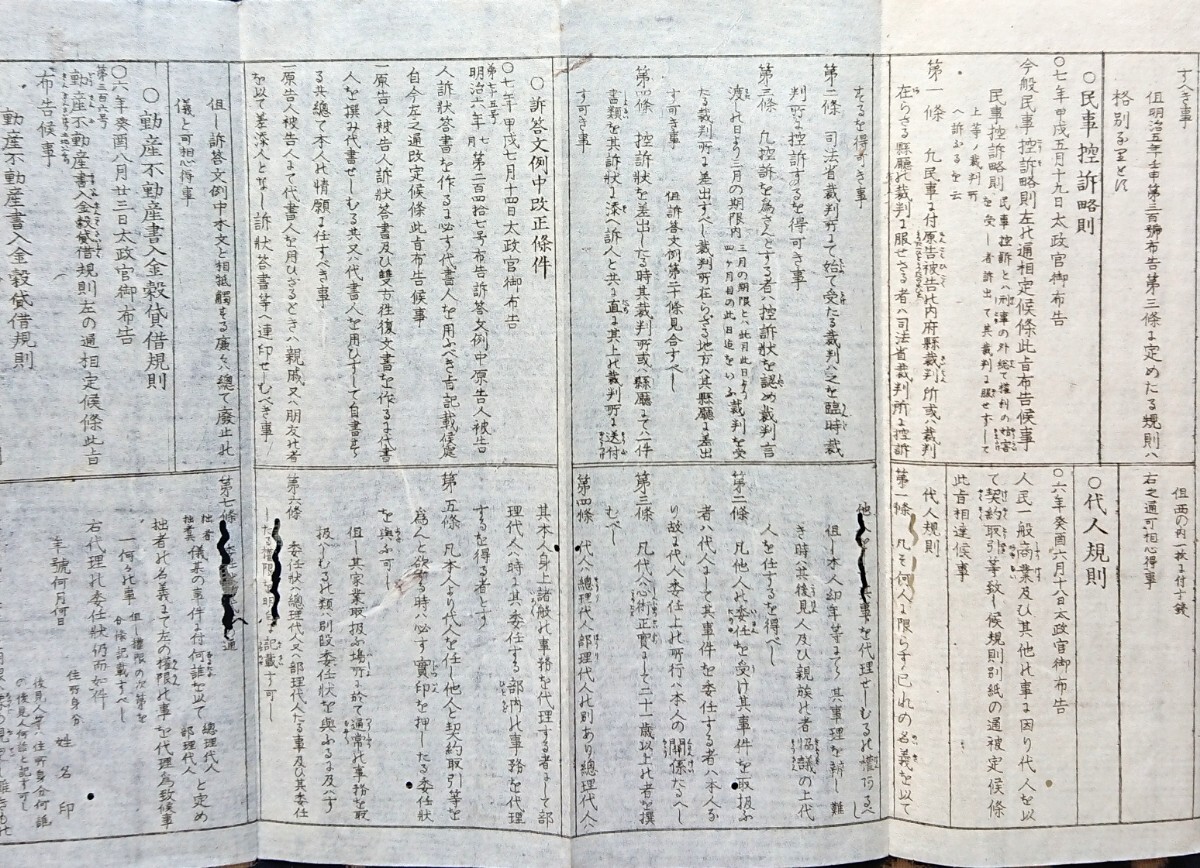 すへき事
但明治五年壬申第三百號布告第三條に定めたる規則ハ
格別るりとに
○民事控訴略則
○七年甲戌五月十九日太政官御布告
今般民事控訴略則左の通相定候條此旨布告候事
民事控訴略則
民事控訴とハ刑律の外総て権利の
を受し者訴出て其裁判に服せすして
上等ノ裁判所
へ訴ふるを云
第一條 凡民事に付原告被告の内府縣裁判所或ハ裁判
在らさる縣廳の裁判に服せさる者ハ司法省裁判所に控訴
するを得可き事
第二條 司法省裁判所にて始て受たる裁判ハ之を臨時裁
判所に控訴するを得可き事
第三條 凡控訴を為さんとする者ハ控訴状を認め裁判言
渡しの日より三月の期限内
三月の期限とハ此月此日より
四ヶ月目の此日迄をいふ
裁判を受
たる裁判所に差出すべし裁判所在らざる地方ハ其縣廳に差出
す可き事 但訴答文例第二十條見合すべし
第四條 控訴状を差出したる時其裁判所或ハ縣廳にて一件
書類を其訴状に添へ訴人と共に直に其上の裁判所に送付
す可き事
○訴答文例中改正條件
○七年甲戌七月十四日太政官御布告
第七十五号
明治六年七月第二百四拾七号布告訴答文例中原告人被告
人訴状答書を作るに必す代書人を用ふべき旨記載候處
自今左之通改定候條此旨布告候事
一原告人被告人訴状答書及ひ雙方往復文書を作るに代書
人を撰み代書せしむる共又ハ代書人を用ひすして自書する
る共總て本人の情願に任すべき事
一原告人被告人にて代書人を用ひざるときハ親戚又ハ朋友の者
を以て差添人となし訴状答書等へ連印せしむべき事
但し訴答文例中本文と相抵觸する廉々ハ總て廢止の
儀と可相心得事
○動産不動産書入金穀貸借規則
○六年癸酉八月廿三日太政官御布告
第三百六号
動産不動産書入金穀貸借規則左の通相定候條此旨
布告候事
動産不動産書入金穀貸借規則
但西の内一枚に付寸錢
右之通可相心得事
○代人規則
○六年癸酉六月十八日太政官御布告
人民一般商業及ひ其他の事に因り代人を以
て契約取引等致し候規則別紙の通被定候條
此旨相達候事
代人規則
第一條 凡そ何人に限らす已れの名義を以て
他人をして其事を代理せしむるの權あるべし
但し本人幼年等にて其事理を辨し難
き時ハ其後見人及ひ親族の者協議の上代
人を任するを得べし
第二條 凡他人の委任を受け其事件を取扱ふ
者ハ代人にして其事件を委任する者ハ本人な
り故に代人委任上の所行ハ本人の關係たるへし
第三條 凡代人ハ心術正實にして二十一歳以上の者を撰
むべし
第四條 代人ハ總理代人部理代人の別あり總理代人ハ
其本人身上諸般の事務を代理する者にして部
理代人ハ時に其委任する部内の事務を代理
するを得る者とす
第五條 凡本人より代人を任し他人と契約取引等を
為んと欲する時ハ必す實印を押したる委任状
を與ふ可し
但し其家業取扱ふ場所に於て通常の事務を取
扱ハしむるの類ハ別段委任状を與ふるに及ハす
第六條 委任状ハ總理代人又ハ部理代人たる事及ひ其委任
したる權限を明に記載す可し
第七條
拙者
拙業
儀某の事件に付何誰を以て
總理代人
部理代人
と定め
拙者の名義にて左の權限の事を代理為致候事
一何々の事 但し權限の次第を
各條記載すべし
右代理の委任状仍而如件
年號何月何日
住所身分
姓名印
後見人等ハ住所身分何誰
の後見人何誰と記す可し